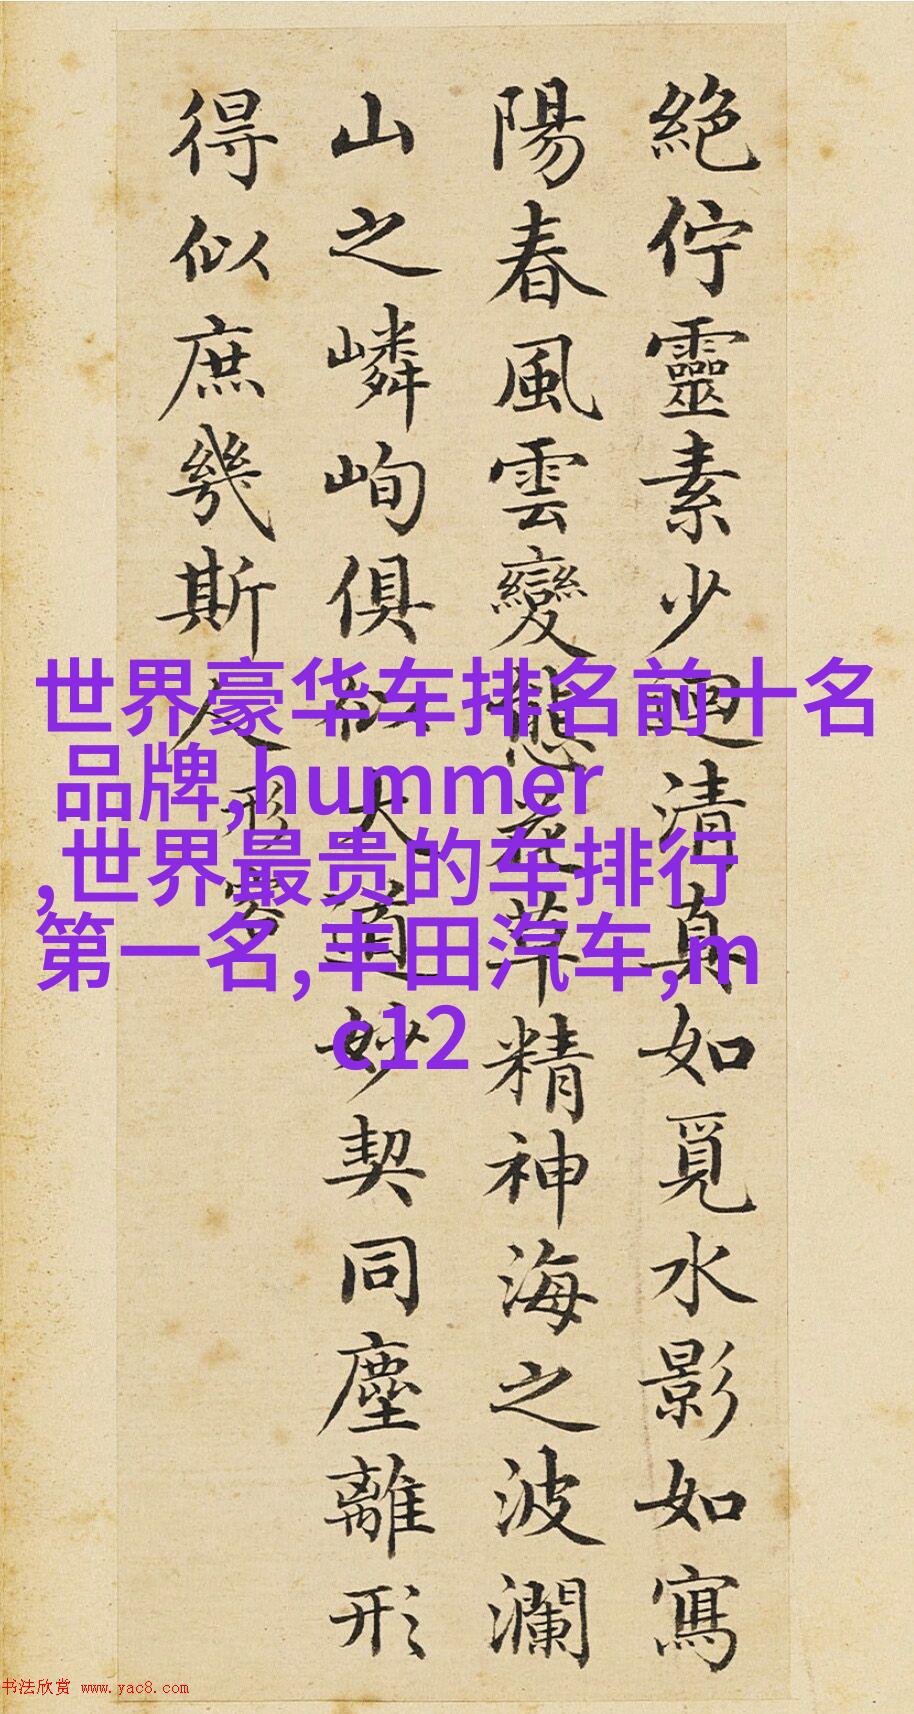 絕佇靈素少迴清真如覓水影如寫
陽春風雲變態花草精神海之波瀾
山之嶙峋俱似大道妙契同塵離形
得似庶幾斯人
形容
世界豪华车排名前十名
品牌,hummer
,世界最贵的车排行
第一名,丰田汽车,m
c12
书法欣赏 www.yac8.com